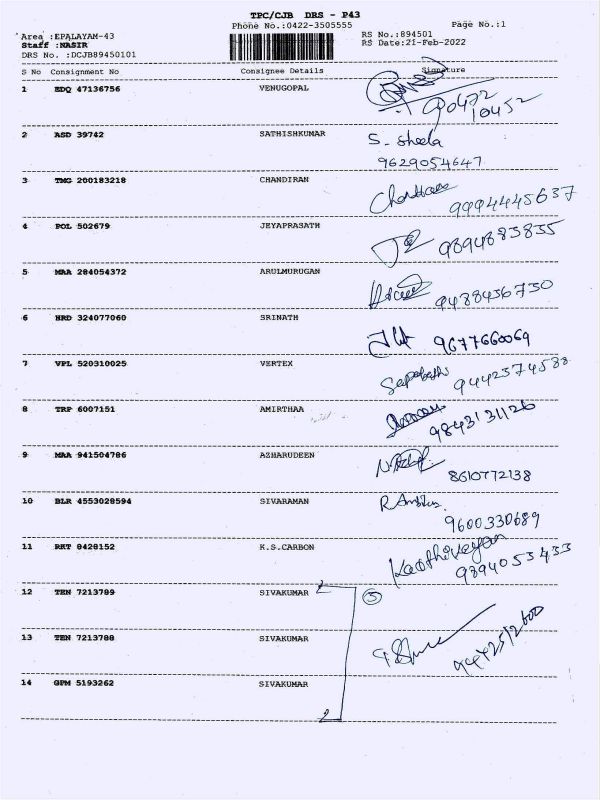 TPC/CJB DRS - P43
Phone No.:0422-3505555
Page No.:1
Area :EPALAYAM-43
RS No.:894501
Staff :NASIR
RS Date:21-Feb-2022
DRS No. :DCJB89450101
S No Consignment No Consignee Details Signature
1 EDQ 47136756 VENUGOPAL
90472
10452
2 ASD 39742 SATHISHKUMAR S. Sheela
9629054647
3 TMG 200183218 CHANDIRAN
9994445637
4 POL 502679 JEYAPRASATH
9894883855
5 MAA 284054372 ARULMURUGAN
9488436730
6 HRD 324077060 SRINATH
9677660069
7 VPL 520310025 VERTEX
9442374588
8 TRP 6007151 AMIRTHAA
9843131126
9 MAA 941504786 AZHARUDEEN
8610772138
10 BLR 4553028594 SIVARAMAN
9600330689
11 RKT 0420152 K.S.CARBON Karthikeyan
9894053433
12 TEN 7213789 SIVAKUMAR 3
13 TEN 7213788 SIVAKUMAR
9442512600
14 GPM 5193262 SIVAKUMAR